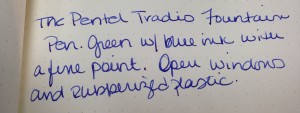 The Pentel Tradio Fountain
Pen. Green w/ blue ink with
a fine point. Open windows
and rubberized plastic.